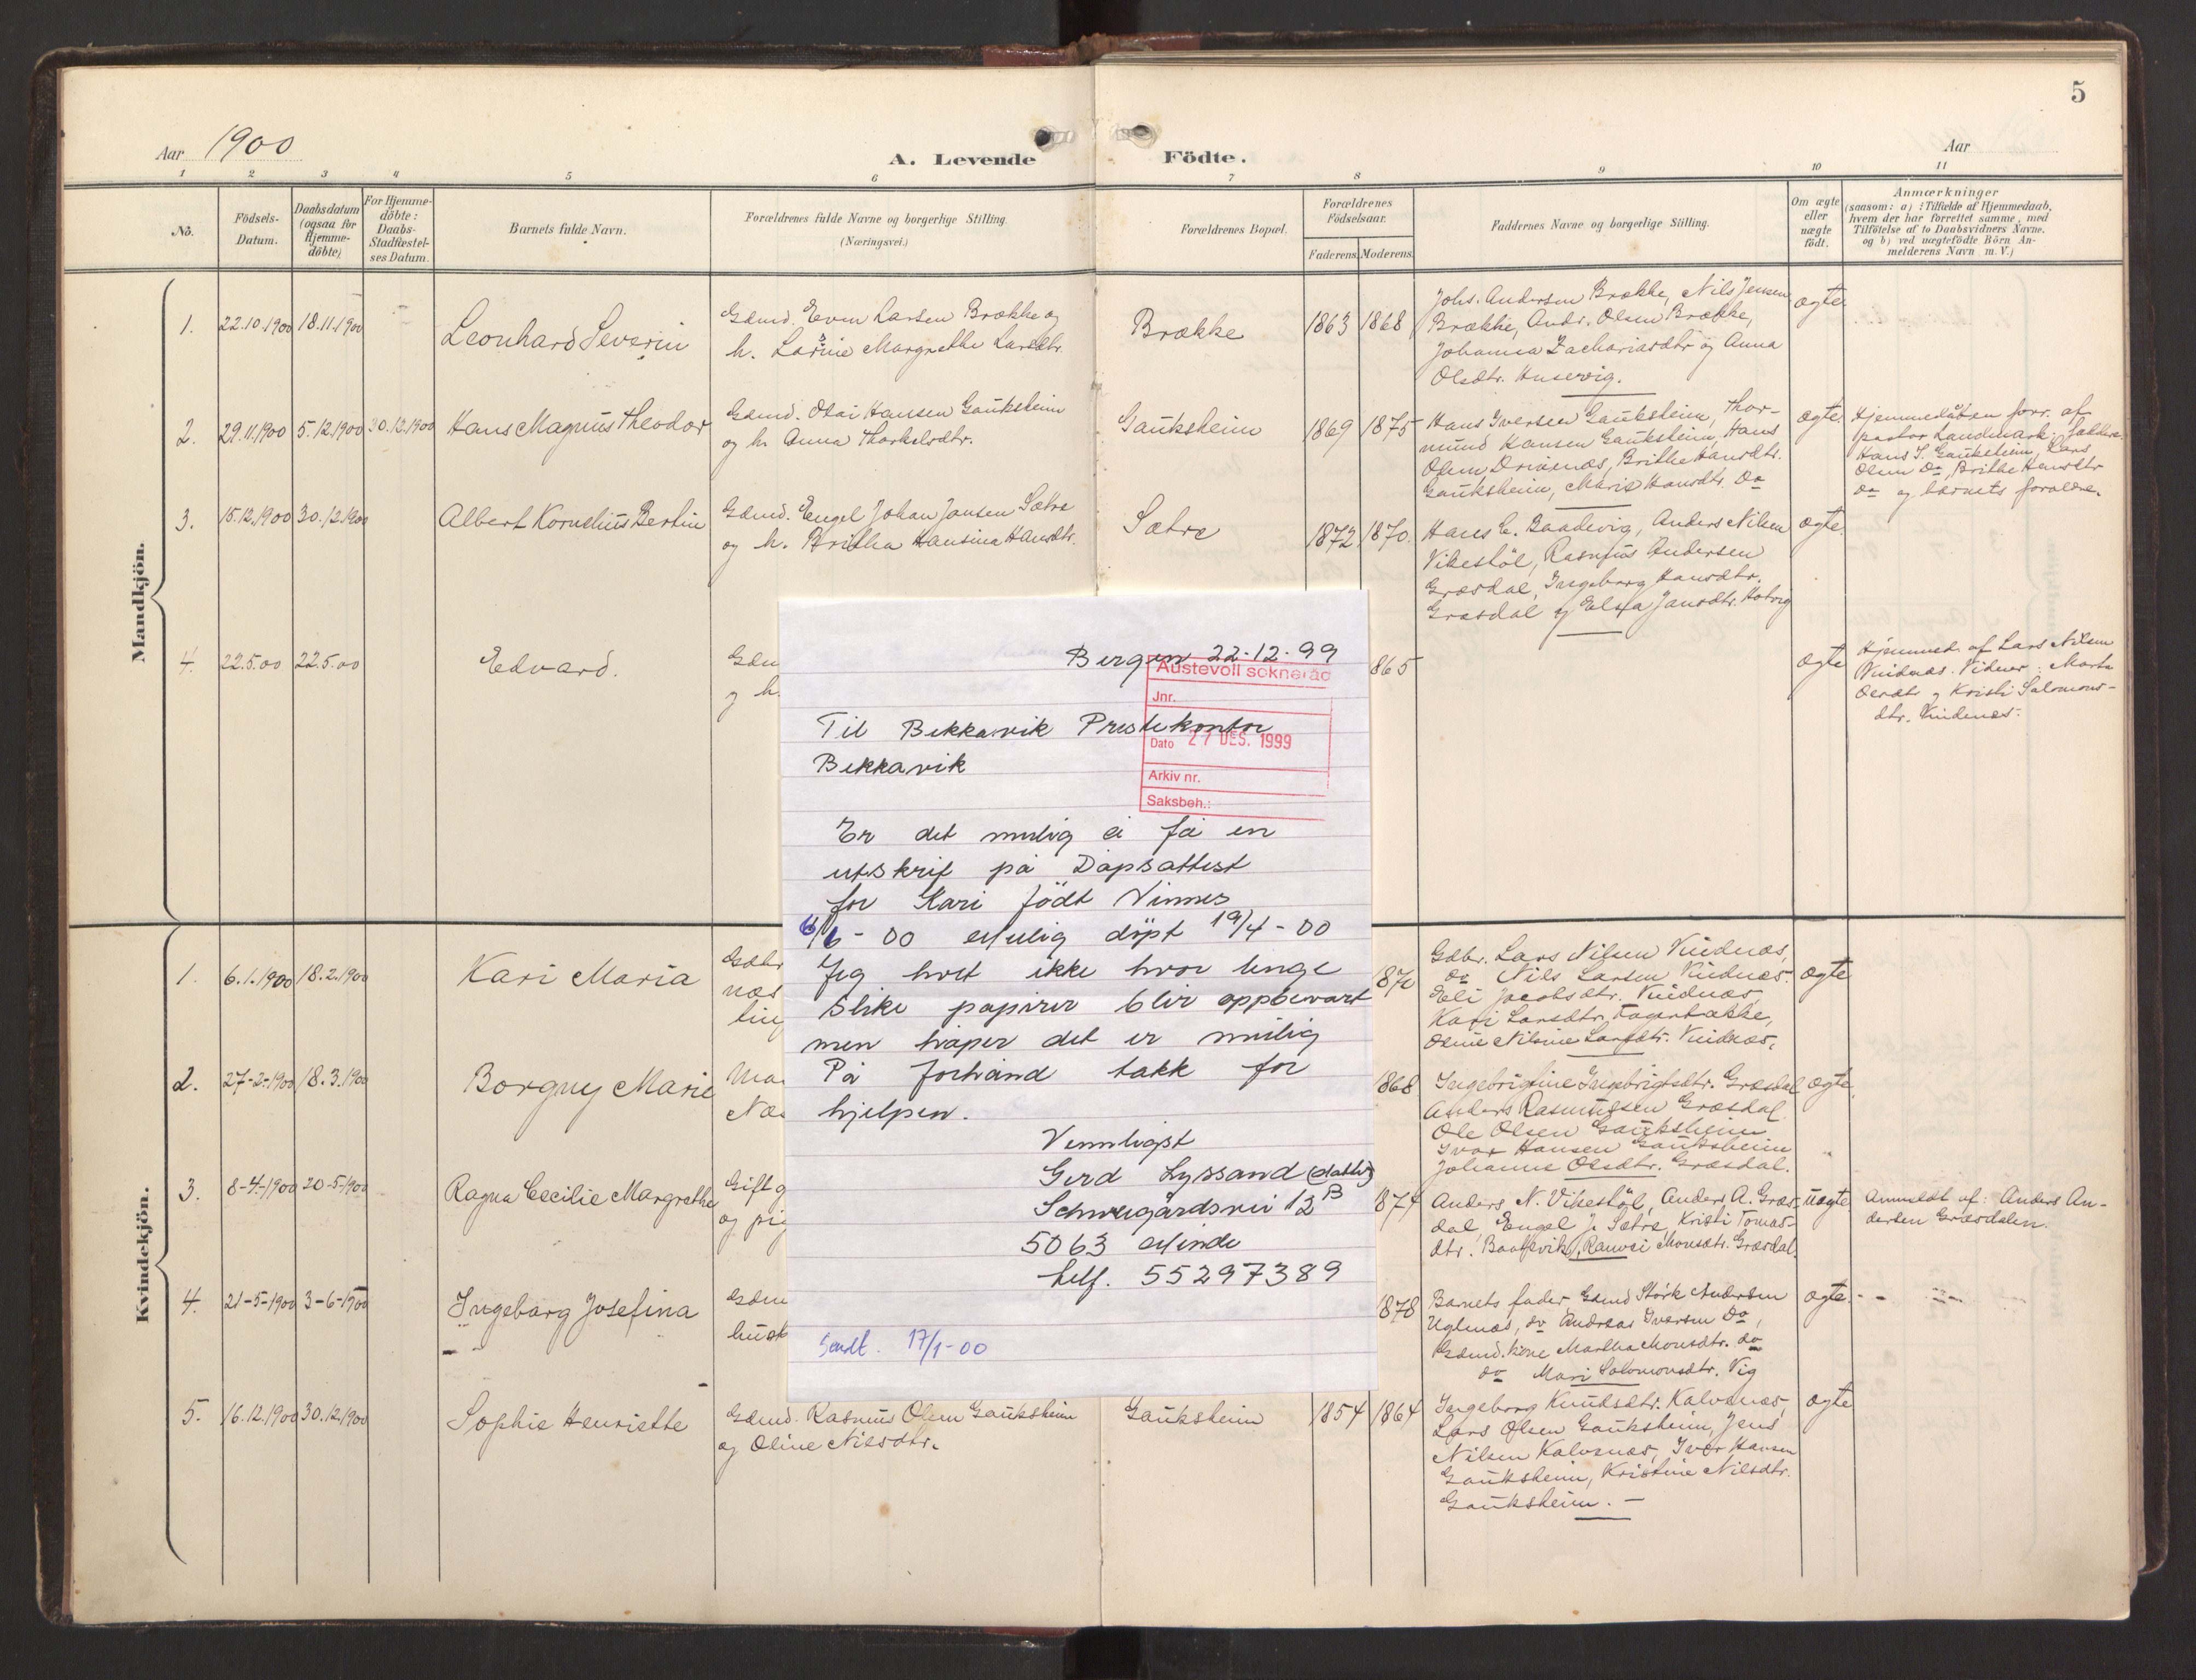 5
Aar 1900
A. Levende Födte.
Aar
1 2 3 4 5 6 7 8 9 10 11
No.
Födsels-
Datum.
Daabsdatum
(ogsaa for
Hjemme-
döbte)
For Hjemme-
döbte:
Daabs-
Stadfæstel-
ses Datum.
Barnets fulde Navn.
Forældrenes fulde Navne og borgerlige Stilling.
(Næringsvei.)
Forældrenes Bopæl.
Forældrenes
Födselsaar.
Faderens. Moderens.
Faddernes Navne og borgerlige Stilling.
Om ægte
eller
uægte
födt.
Anmærkninger
(saasom: a) i Tilfælde af Hjemmedaab,
hvem der har forrettet samme, med
Tilföielse af to Daabsvidners Navne.
og b) ved uægtefödte Börn An-
melderens Navn m. V.)
Mandkjön.
1. 22.10.1900 18.11.1900
Leonhard Severin
Gdmd. Even Larsen Brække og
h. Larsine Margrethe Larsdtr.
Brække
1863 1868
Johs. Andersen Brække, Nils Jensen
Brække, Andr. Olsen Brække,
Johanna Zachariasdtr og Anna
Olsdtr. Husevig.
ægte
2. 29.11.1900 5.12.1900 30.12.1900
Hans Magnus Theodor
Gdmd. Otai Hansen Gauksheim
og h. Anna Thorkelsdtr.
Gauksheim
1869 1875
Hans Iversen Gauksheim, Thor-
mund Hansen Gauksheim, Hans
Olsen Drivenæs, Brithe Hansdtr.
Gauksheim, Marie Hansdtr. Do
ægte.
Hjemmedåben forr. af
pastor Landmark; faddere:
Hans I. Gauksheim, Lars
Olsen Do, Brithe Hansdtr
Do og barnets forældre.
3. 15.12.1900 30.12.1900
Albert Kornelius Bertin
Gdmd. Engel Johan Jansen Sætre
og h. Britha Hansina Hansdtr.
Sætre
1872 1870.
Hans C. Baadevig, Anders Nilsen
Vikestöl, Rasmus Andersen
Græsdal, Ingeborg Hansdtr.
Græsdal og Elsa Jansdtr.
ægte.
4. 22.5.00 22.5.00
Edvard.
Gdm
og h.
865
ægte
Hjemmed. af Lars Nilsen
Vindnæs. Vidner: Marta
Olsdtr og Kristi Salomons-
dtr. Vindenæs.
Bergen 22-12-99
Austevoll sokneråd
Jnr.
Dato 27 DES. 1999
Arkiv nr.
Saksbeh.:
Til Bekkarvik Prestekontor
Bekkarvik
Er det mulig å få en
utskrif på Dåpsattest
for Kari født Vinnes
6/1-00 mulig døpt 19/4-00
Jeg hvet ikke hvor lenge
slike papirer blir oppbevart
men håper det er mulig
På forhånd takk for
hjelpen.
Vennligst
Gerd Lyssand (datter)
Schweigårdsvei 12B
5063 Minde
telf. 55297389
Sendt. 17/1-00
Kvindekjön.
1. 6.1.1900 18.2.1900
Kari Maria
Gdbr
næs
tin
1870
Gdbr. Lars Nilsen Vindnæs,
do Nils Larsen Vindnæs.
Eli Jacobsdtr. Vindnæs,
Kari Larsdtr. Fagerbakke,
Oline Nilsine Larsdtr. Vindnæs.
ægte
2. 27-2-1900 18.3.1900
Borgny Marie
Ma
Næ
1868
Ingebrigtine Ingebrigtsdtr. Græsdal
Anders Rasmussen Græsdal.
Ole Olsen Gauksheim
Ivar Hansen Gauksheim
Johanne Olsdtr. Græsdal.
ægte.
3. 8-4-1900 20-5-1900
Ragna Cecilie Margrethe
Gift g
og pig
1874
Anders N. Vikestöl, Anders A. Græs-
dal, Engel J. Sætre, Kristi Tomas-
dtr. Baatsvik, Ranvei Monsdtr. Græsdal.
uægte
Anmeldt af: Anders An-
dersen Græsdalen.
4. 21-5-1900 3-6-1900
Ingeborg Josefina
Gdm
hust
1878
Barnets fader Gdmd Störk Andersen
Uglenæs, do Andreas Iversen Do,
Gdmd. kone Martha Monsdtr. do
do Mari Salomonsdtr. Vig
ægte.
5. 16.12.1900 30.12.1900
Sophie Henriette
Gdmd. Rasmus Olsen Gauksheim
og Oline Nilsdtr.
Gauksheim
1854 1864
Ingeborg Knudsdtr. Kalvenæs,
Lars Olsen Gauksheim, Jens
Nilsen Kalvenæs, Ivar Hansen
Gauksheim, Kristine Nilsdtr.
Gauksheim.
ægte